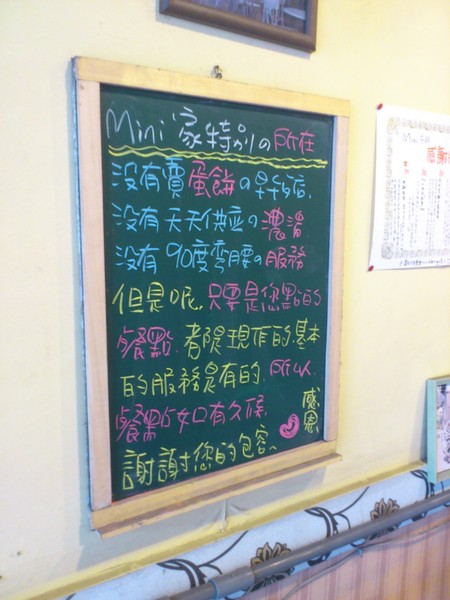 Mini 家特別の所在
沒有賣蛋餅の早餐店
沒有天天供應の濃湯
沒有90度彎腰の服務
但是呢,只要是您點的
餐點.都是現作的.基本
的服務是有的.所以.
餐點如有久候.
感恩
謝謝您的包容、
Mini
感謝